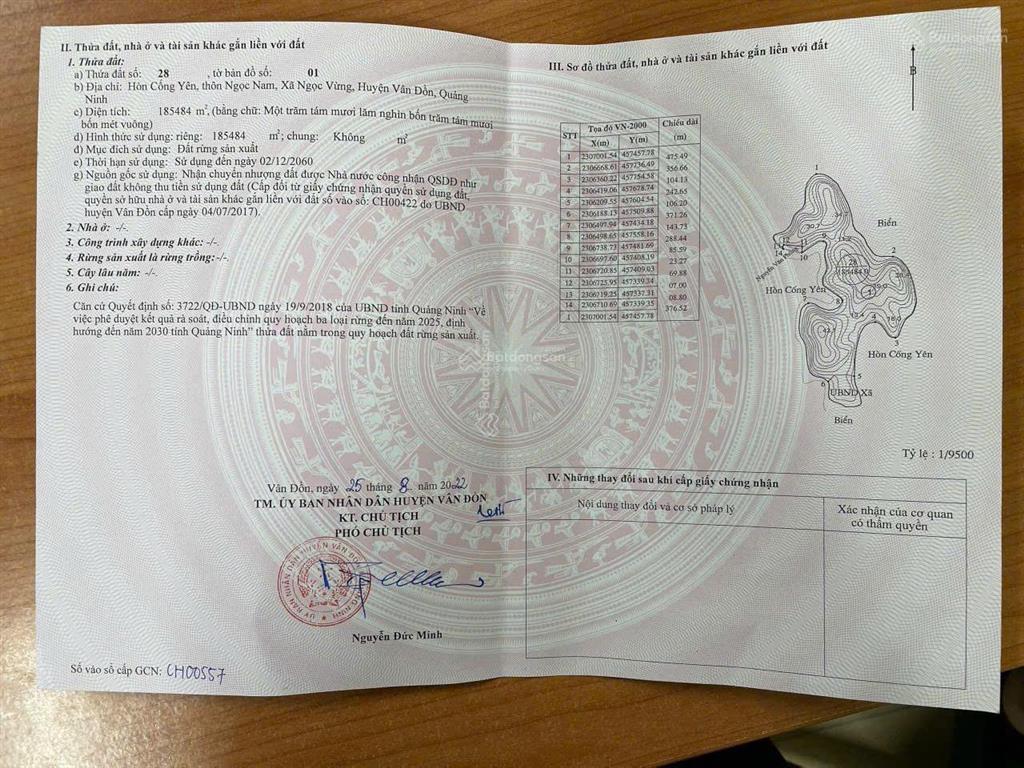 II. Thửa đất, nhà ở và tài sản khác gắn liền với đất
1. Thửa đất:
a) Thửa đất số: 28 , tờ bản đồ số: 01
b) Địa chỉ: Hòn Cống Yên, thôn Ngọc Nam, Xã Ngọc Vừng, Huyện Vân Đồn, Quảng
Ninh
c) Diện tích: 185484 m², (bằng chữ: Một trăm tám mươi lăm nghìn bốn trăm tám mươi
bốn mét vuông)
d) Hình thức sử dụng: riêng: 185484 m²; chung: Không m²
đ) Mục đích sử dụng: Đất rừng sản xuất
e) Thời hạn sử dụng: Sử dụng đến ngày 02/12/2060
g) Nguồn gốc sử dụng: Nhận chuyển nhượng đất được Nhà nước công nhận QSDĐ như
giao đất không thu tiền sử dụng đất (Cấp đổi từ giấy chứng nhận quyền sử dụng đất,
quyền sở hữu nhà ở và tài sản khác gắn liền với đất số vào sổ: CH00422 do UBND
huyện Vân Đồn cấp ngày 04/07/2017).
2. Nhà ở: -/-.
3. Công trình xây dựng khác: -/-.
4. Rừng sản xuất là rừng trồng: -/-.
5. Cây lâu năm: -/-.
6. Ghi chú:
Căn cứ Quyết định số: 3722/QĐ-UBND ngày 19/9/2018 của UBND tỉnh Quảng Ninh “Về
việc phê duyệt kết quả rà soát, điều chỉnh quy hoạch ba loại rừng đến năm 2025, định
hướng đến năm 2030 tỉnh Quảng Ninh” thửa đất nằm trong quy hoạch đất rừng sản xuất.
Vân Đồn, ngày 25 tháng 8 năm 2022
TM. ỦY BAN NHÂN DÂN HUYỆN VÂN ĐỒN
KT. CHỦ TỊCH
PHÓ CHỦ TỊCH
Nguyễn Đức Minh
Số vào sổ cấp GCN: CH00557
III. Sơ đồ thửa đất, nhà ở và tài sản khác gắn liền với đất
STT Tọa độ VN-2000 Chiều dài
X(m) Y(m) (m)
1 2307001.54 457457.78
475.49
2 2306668.61 457736.49
356.66
3 2306360.22 457754.58
104.13
4 2306419.06 457678.74
242.65
5 2306209.55 457604.54
106.20
6 2306188.13 457509.88
371.26
7 2306497.94 457434.18
143.73
8 2306498.65 457558.16
288.44
9 2306738.73 457481.69
85.59
10 2306697.60 457408.19
23.27
11 2306720.85 457409.03
69.88
12 2306725.95 457339.34
07.00
13 2306719.25 457337.31
08.80
14 2306710.69 457339.35
376.52
1 2307001.54 457457.78
B
1
Biển
2
10
14
28
185484.0
Hòn Cống Yên
8
7
3
Hòn Cống Yên
5
6
UBND Xã
Biển
Tỷ lệ : 1/9500
IV. Những thay đổi sau khi cấp giấy chứng nhận
Nội dung thay đổi và cơ sở pháp lý
Xác nhận của cơ quan
có thẩm quyền
Batdongsan